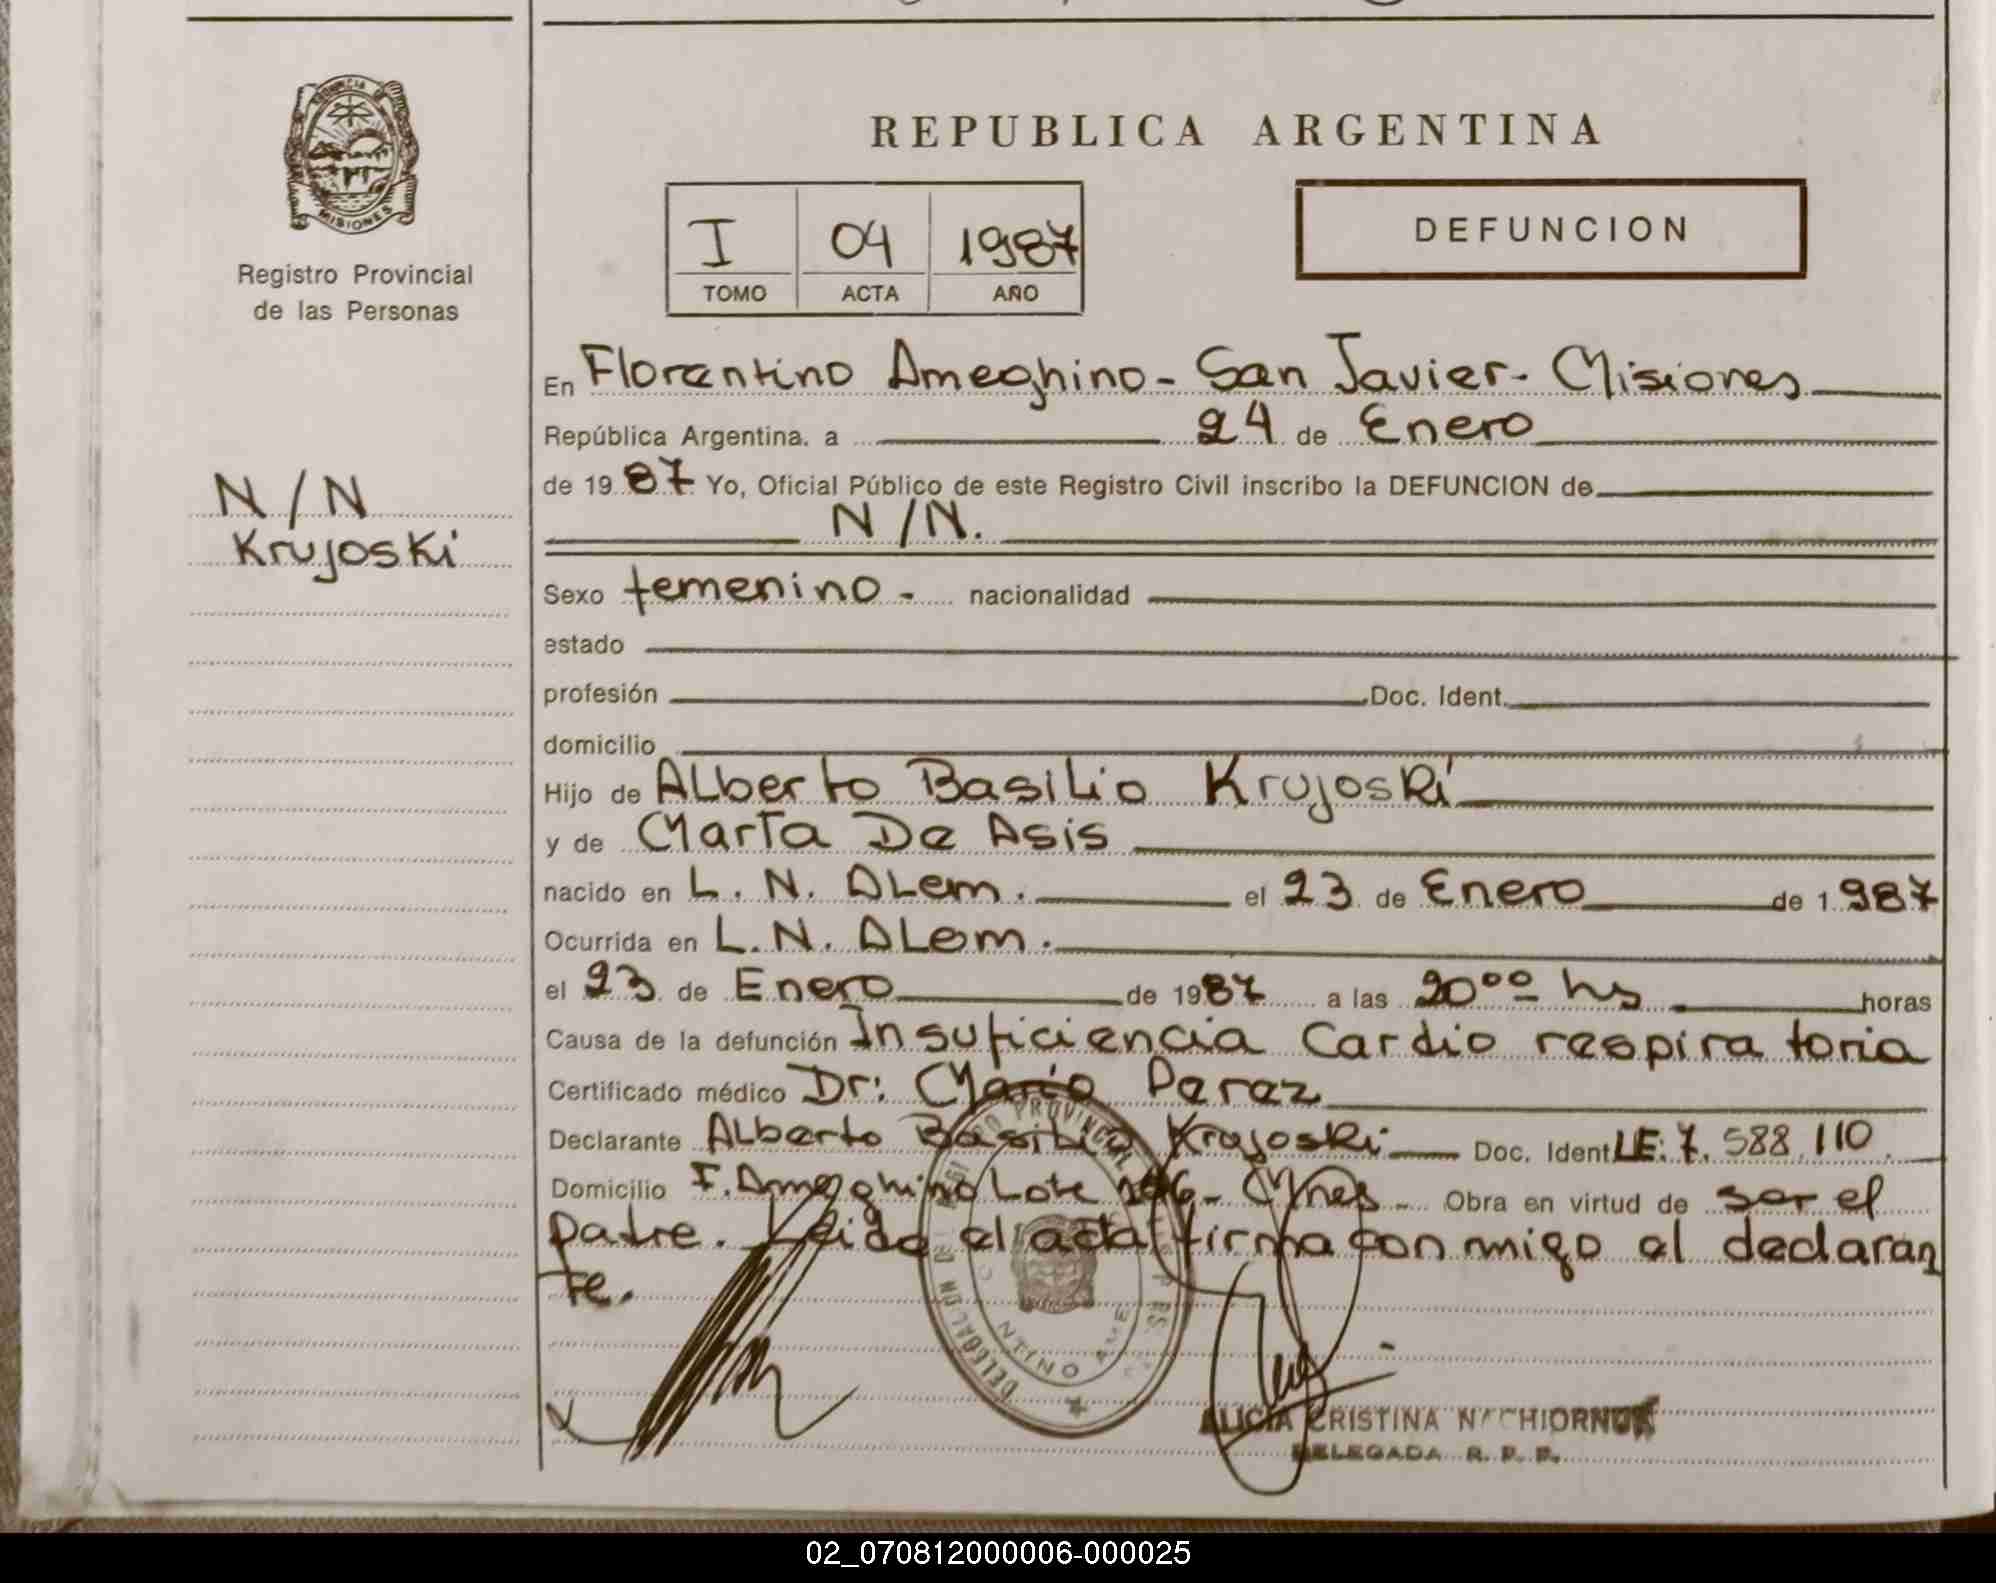 PROVINCIA DE
MISIONES
Registro Provincial
de las Personas
N/N
Krujoski
REPUBLICA ARGENTINA
I 04 1987
TOMO ACTA AÑO
DEFUNCION
En Florentino Ameghino - San Javier - Misiones
República Argentina. a 24 de Enero
de 19 87 Yo, Oficial Público de este Registro Civil inscribo la DEFUNCION de
N/N.
Sexo femenino - nacionalidad
estado
profesión Doc. Ident.
domicilio
Hijo de Alberto Basilio Krujoski
y de Marta De Asis
nacido en L. N. Alem. el 23 de Enero de 1987
Ocurrida en L. N. Alem.
el 23 de Enero de 1987 a las 20⁰⁰ hs horas
Causa de la defunción Insuficiencia Cardio respiratoria
Certificado médico Dr: Mario Perez
Declarante Alberto Basilio Krujoski Doc. Ident LE: 7.588.110
Domicilio F. Ameghino Lote - Mnes - Obra en virtud de ser el
padre. Leida el acta firma con migo el declaran
te.
PROVINCIAL
DELEGACION
ALICIA CRISTINA
DELEGADA R. P. P.
02_070812000006-000025